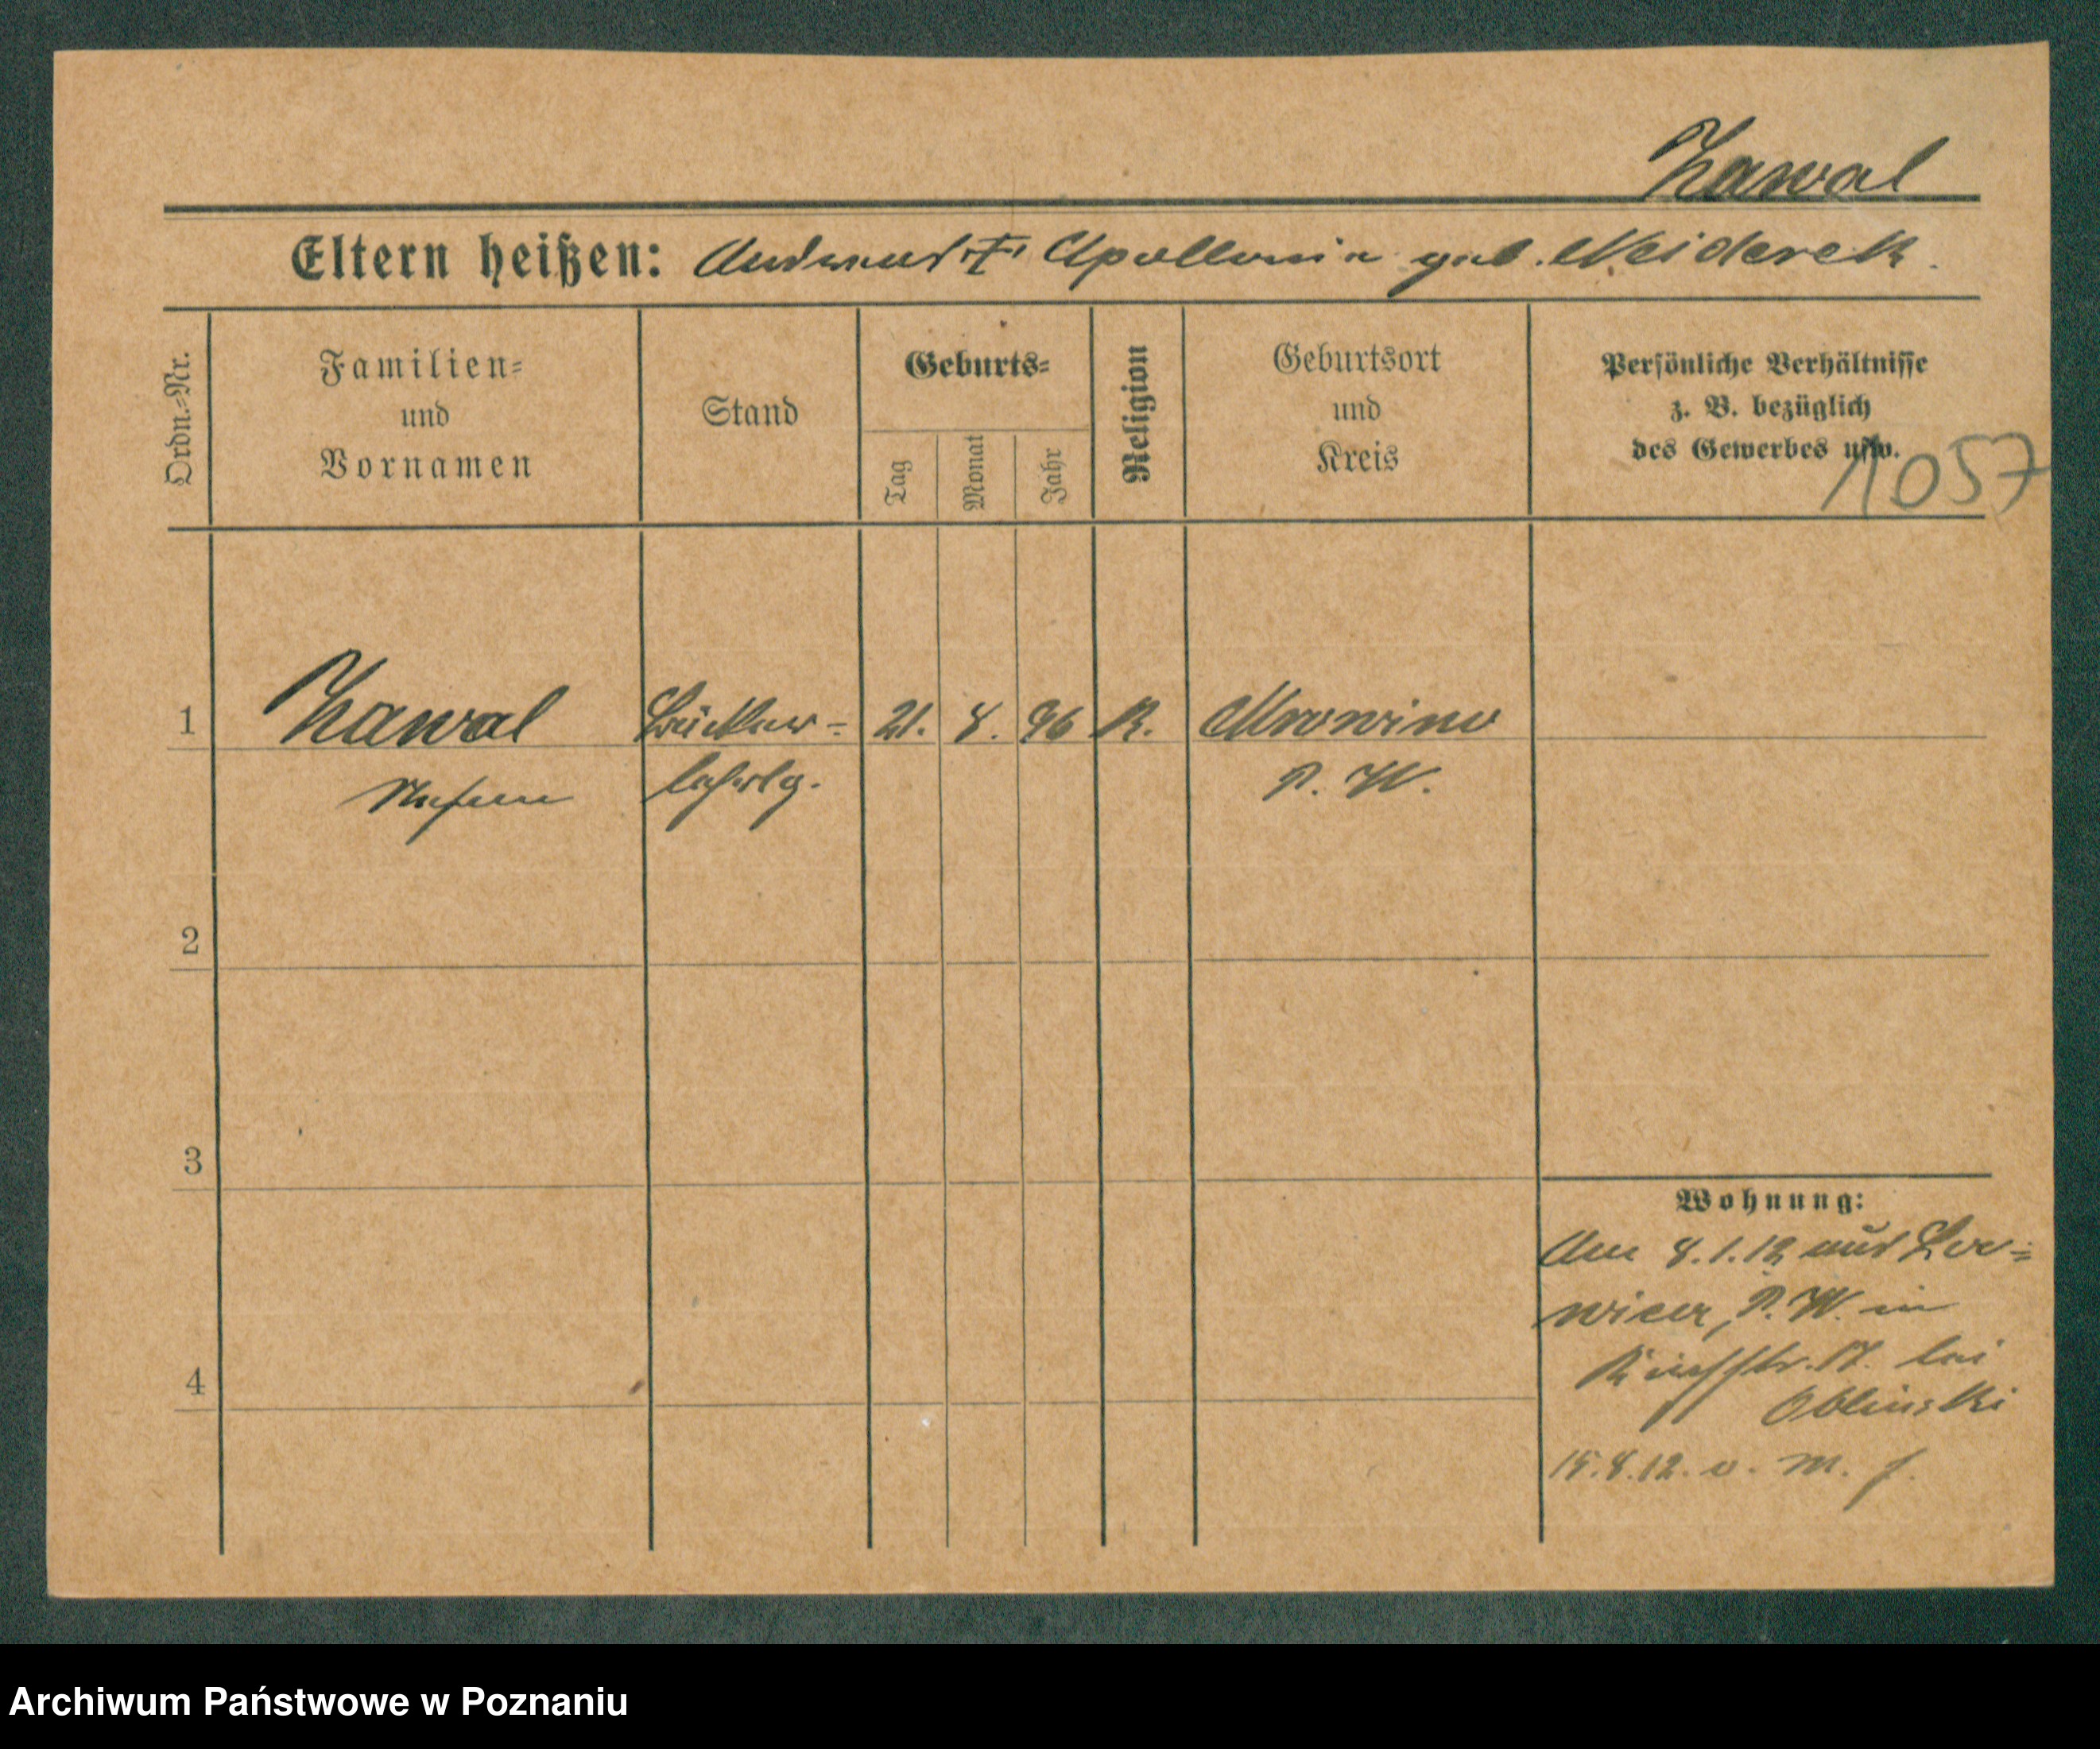 Zawal
Eltern heißen: Andreas † Apollonia geb. Neiderek.
Ordn.-Nr.
Familien-
und
Vornamen
Stand
Geburts-
Tag
Monat
Jahr
Religion
Geburtsort
und
Kreis
Persönliche Verhältnisse
z. B. bezüglich
des Gewerbes usw.
1057
1 Zawal 21. 8. 96 K. Mrowino
Stefan lehrlg. P. W.
2
3
4
Wohnung:
Am 8.1.12 aus
P. W. in
str. 17. bei
Oblinski
15.8.12. v. M. f.
Archiwum Państwowe w Poznaniu